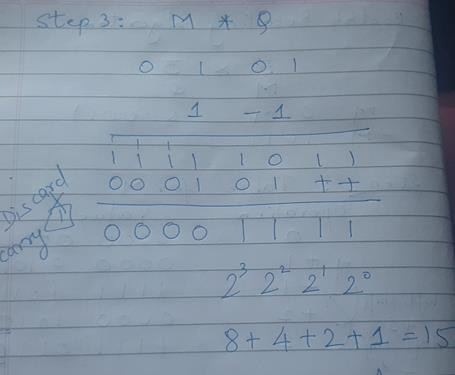 Step 3: M * Q
0 1 0 1
1 -1
1 1 1
1 1 1 1 1 0 1 1
0 0 0 1 0 1 + +
Discard carry 1
0 0 0 0 1 1 1 1
2³ 2² 2¹ 2⁰
8 + 4 + 2 + 1 = 15